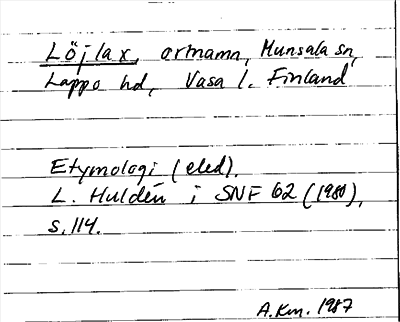 Löjlax, ortnamn, Munsala sn,
Lappo hd, Vasa l. Finland
Etymologi (eled).
L. Huldén i SNF 62 (1980),
s. 114.
A.Km. 1987